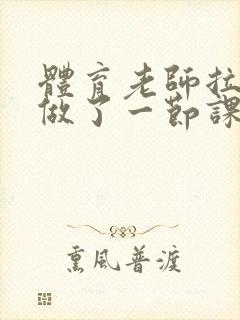 體育老師拉
做了一節課
熏風普渡